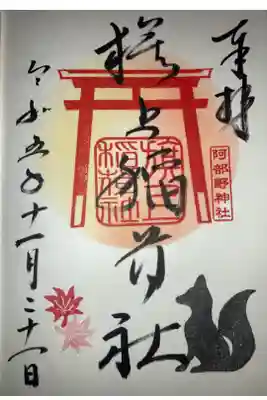 奉拝
阿部野神社
旗上稲荷社
令和五年十一月二十一日